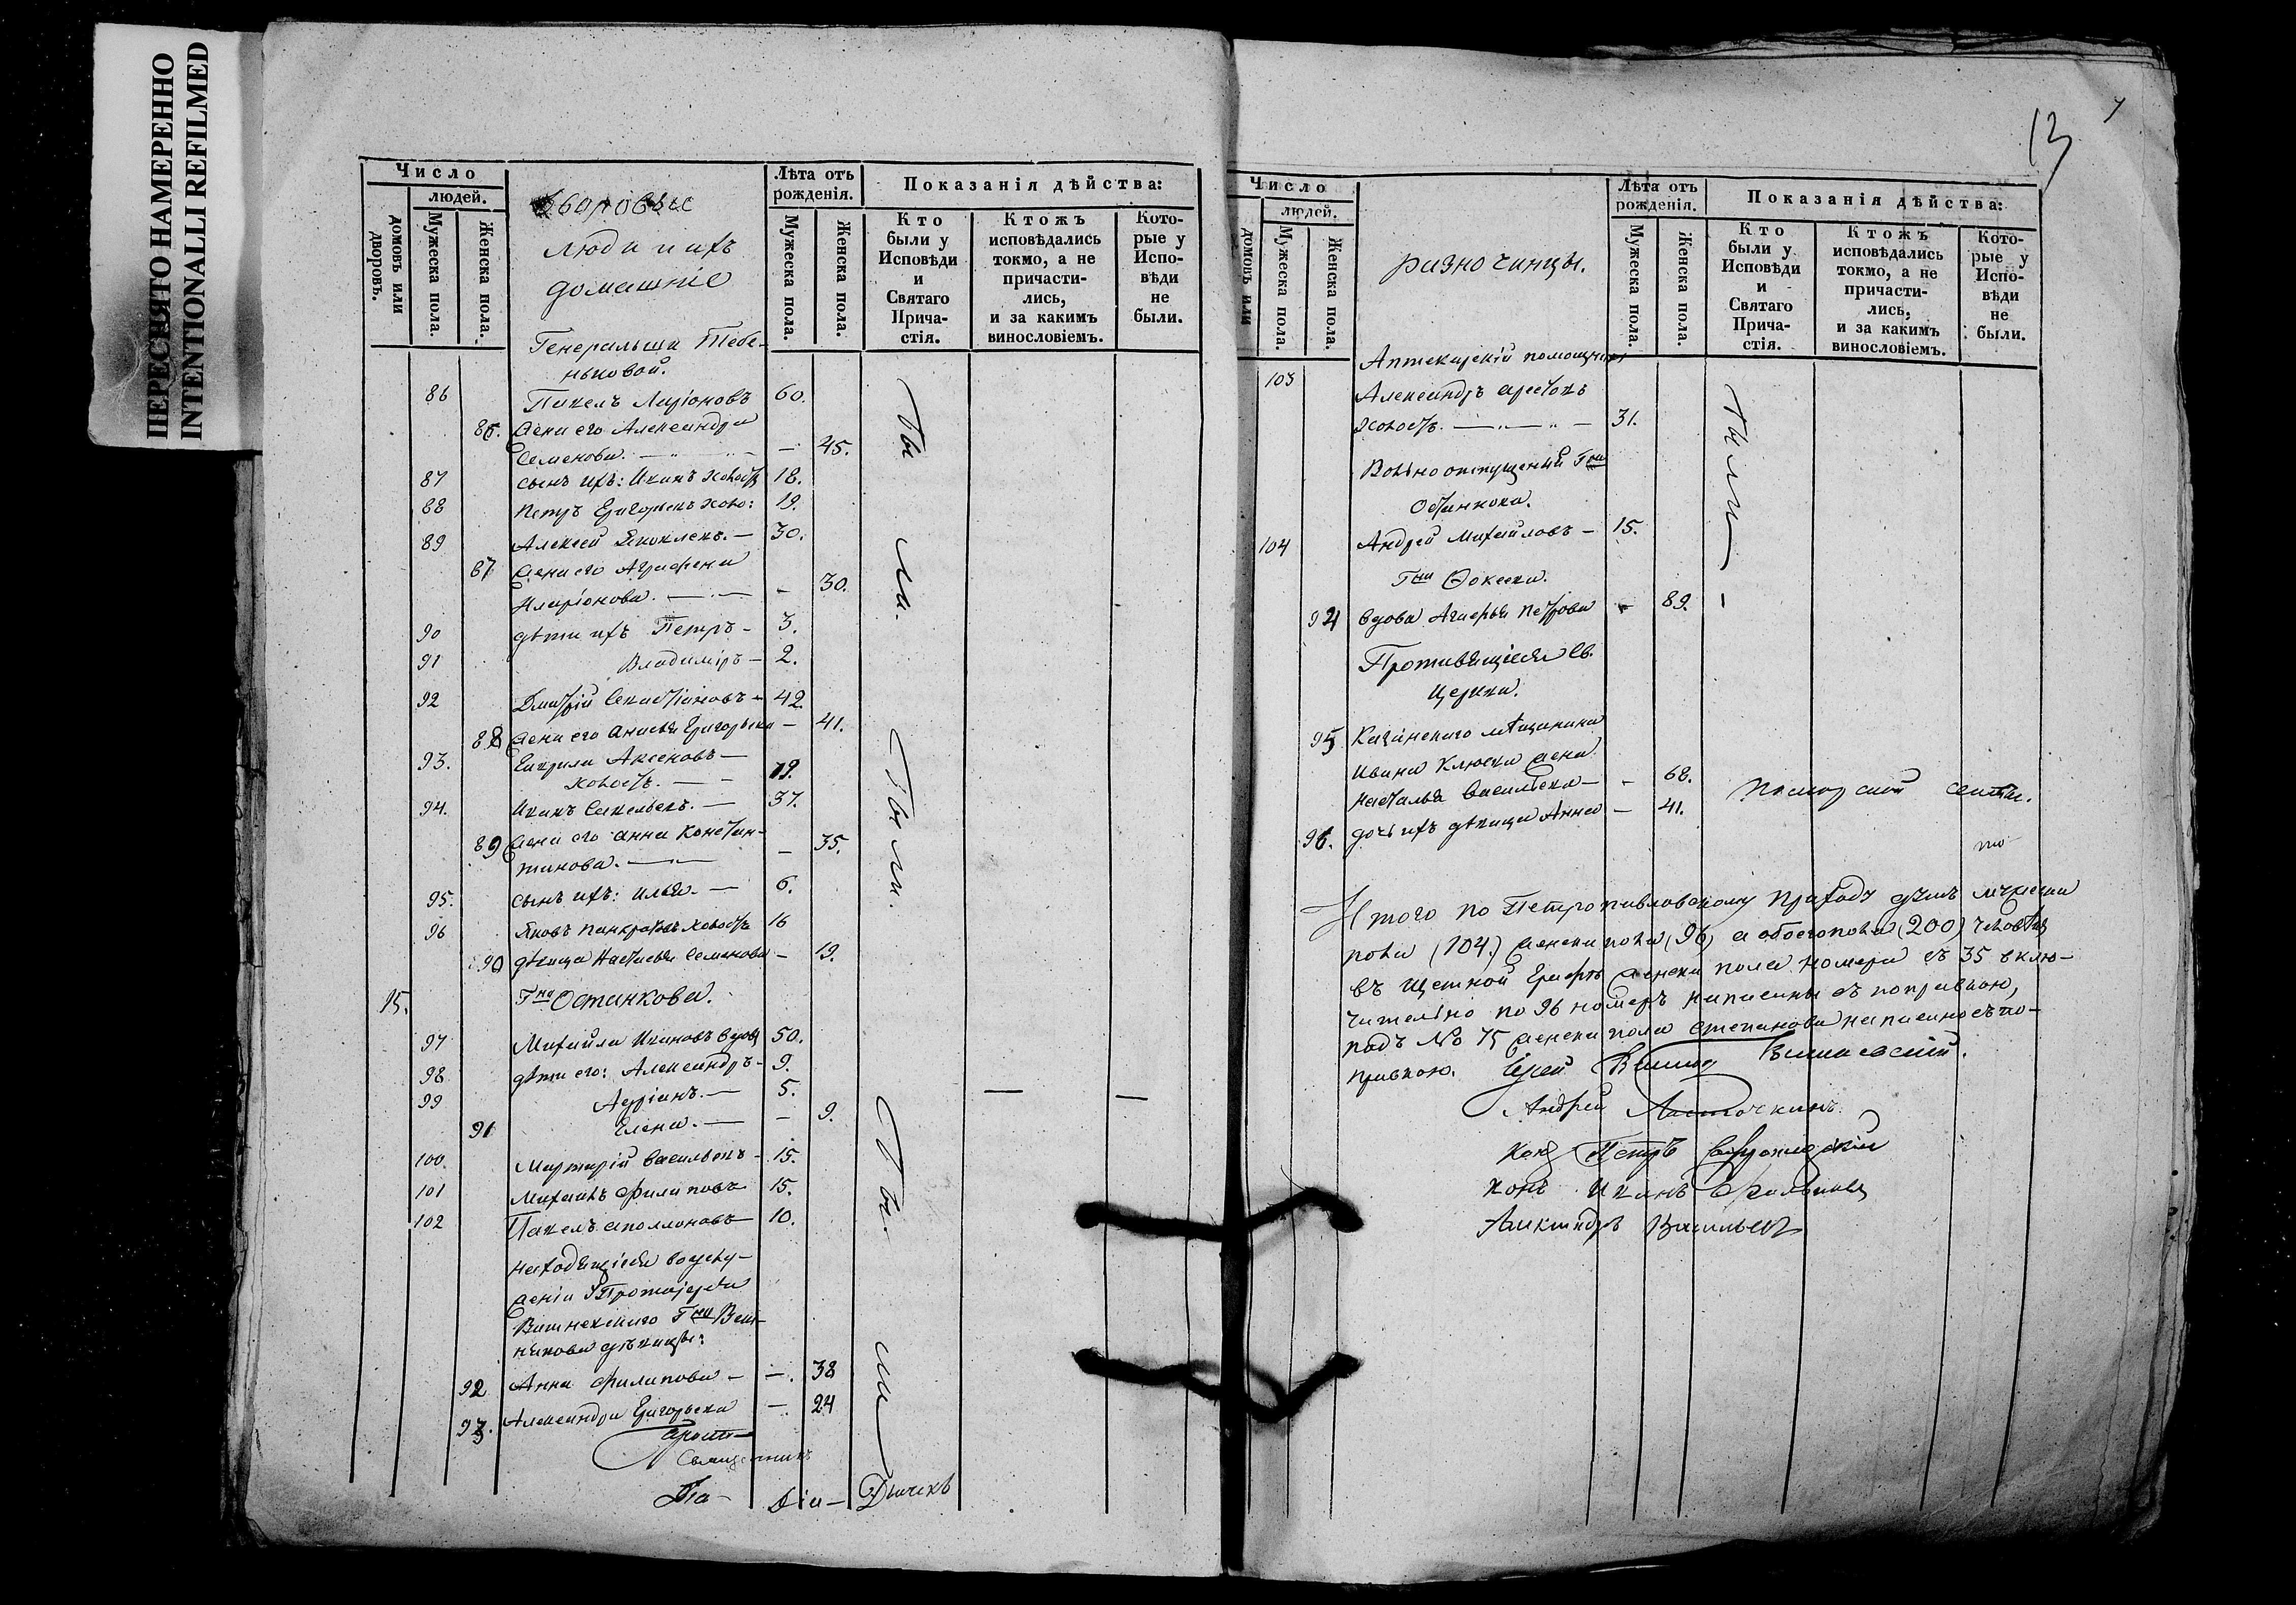 ПЕРЕСНЯТО НАМЕРЕННО
INTENTIONALLI REFILMED
Число
людей.
домовъ или дворовъ.
Мужеска пола.
Женска пола.
Дворовые
люди и ихъ
домашніе
Лѣта отъ рожденія.
Мужеска пола.
Женска пола.
Показанія дѣйства:
Кто были у Исповѣди и Святаго Прича-стія.
Ктожъ исповѣдались токмо, а не причасти-лись, и за какимъ винословіемъ.
Кото-рые у Испо-вѣди не были.
Генеральши Тебе-
ньковой.
86 Павелъ Ларіоновъ 60.
86. жена его Александра
Семенова. — 45.
87 сынъ ихъ: Иванъ холостъ 18.
88 Петръ Григорьевъ холо: 19.
89 Алексей Яковлевъ. — 30.
87 жена его Аграфена
Иларіонова. — 30.
90 дѣти ихъ Петръ — 3.
91 Владиміръ — 2.
92 Дмитрій Севастіановъ — 42.
88 жена его Анисья Григорьева — 41.
93. Гаврила Аксеновъ —
холостъ. — 19.
94. Иванъ Савельевъ. — 37.
89 жена его Анна Констан-
тинова. — 35.
95. сынъ ихъ: Илья. — 6.
96 Яковъ Панкратьевъ холостъ 16
90 дѣвица Настасья Семенова — 19.
15. Гна Останкова.
97 Михайла Ивановъ вдовъ 50.
98 дѣти его: Александръ — 9.
99 Адріанъ. — 5.
91 Елена. — 9.
100. Мартирій Васильевъ — 15.
101 Михаилъ Филиповъ 15.
102 Павелъ Аполлоновъ — 10.
находящіеся во услу-
женіи у Протоіерея
Вишневскаго Гна
дѣвицы:
92 Анна Филипова — 38
93. Александра Григорьева — 24
Были.
Были.
Были
Прото-
Священникъ
По- Діа- Дьячекъ
13
Число
людей.
домовъ или
Мужеска пола.
Женска пола.
разночинцы.
Лѣта отъ рожденія.
Мужеска пола.
Женска пола.
Показанія дѣйства:
Кто были у Исповѣди и Святаго Прича-стія.
Ктожъ исповѣдались токмо, а не причасти-лись, и за какимъ винословіемъ.
Кото-рые у Испо-вѣди не были.
103 Аптекарскій помощникъ
Александръ
холостъ. — 31.
Были
Вольноотпущеный Гна
Останкова.
104 Андрей Михайловъ — 15.
Гна
94 вдова Агафья Петрова — 89.
Противящіеся св.
церкви.
95 Казанскаго мѣщанина
Ивана Клюева жена
Наталья Васильева — 68.
96. дочь ихъ дѣвица Анна — 41.
Поморской секты.
Итого по Петропавловскому приходу душъ мужеска
пола (104.) женска пола (96) а обоего пола (200) человѣкъ
въ щетной графѣ женска пола номера съ 35 вклю-
чительно по 96 номеръ написаны съ поправкою,
подъ № 75 женска пола Степанова написано съ по-
правкою. Іерей Вишневскій.
Андрей Ласточкинъ
Петръ
Иванъ
Александръ Васильевъ